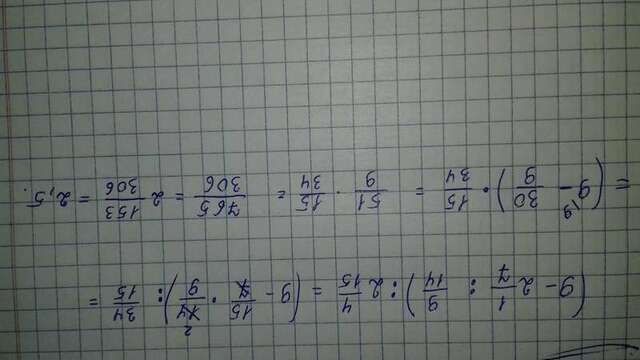 (9 - 2 1/7 : 9/14) : 2 4/15 = (9 - 15/7 · 14/9 2) : 34/15 =
= (9 \9 - 30/9) · 15/34 = 51/9 · 15/34 = 765/306 = 2 153/306 = 2,5.